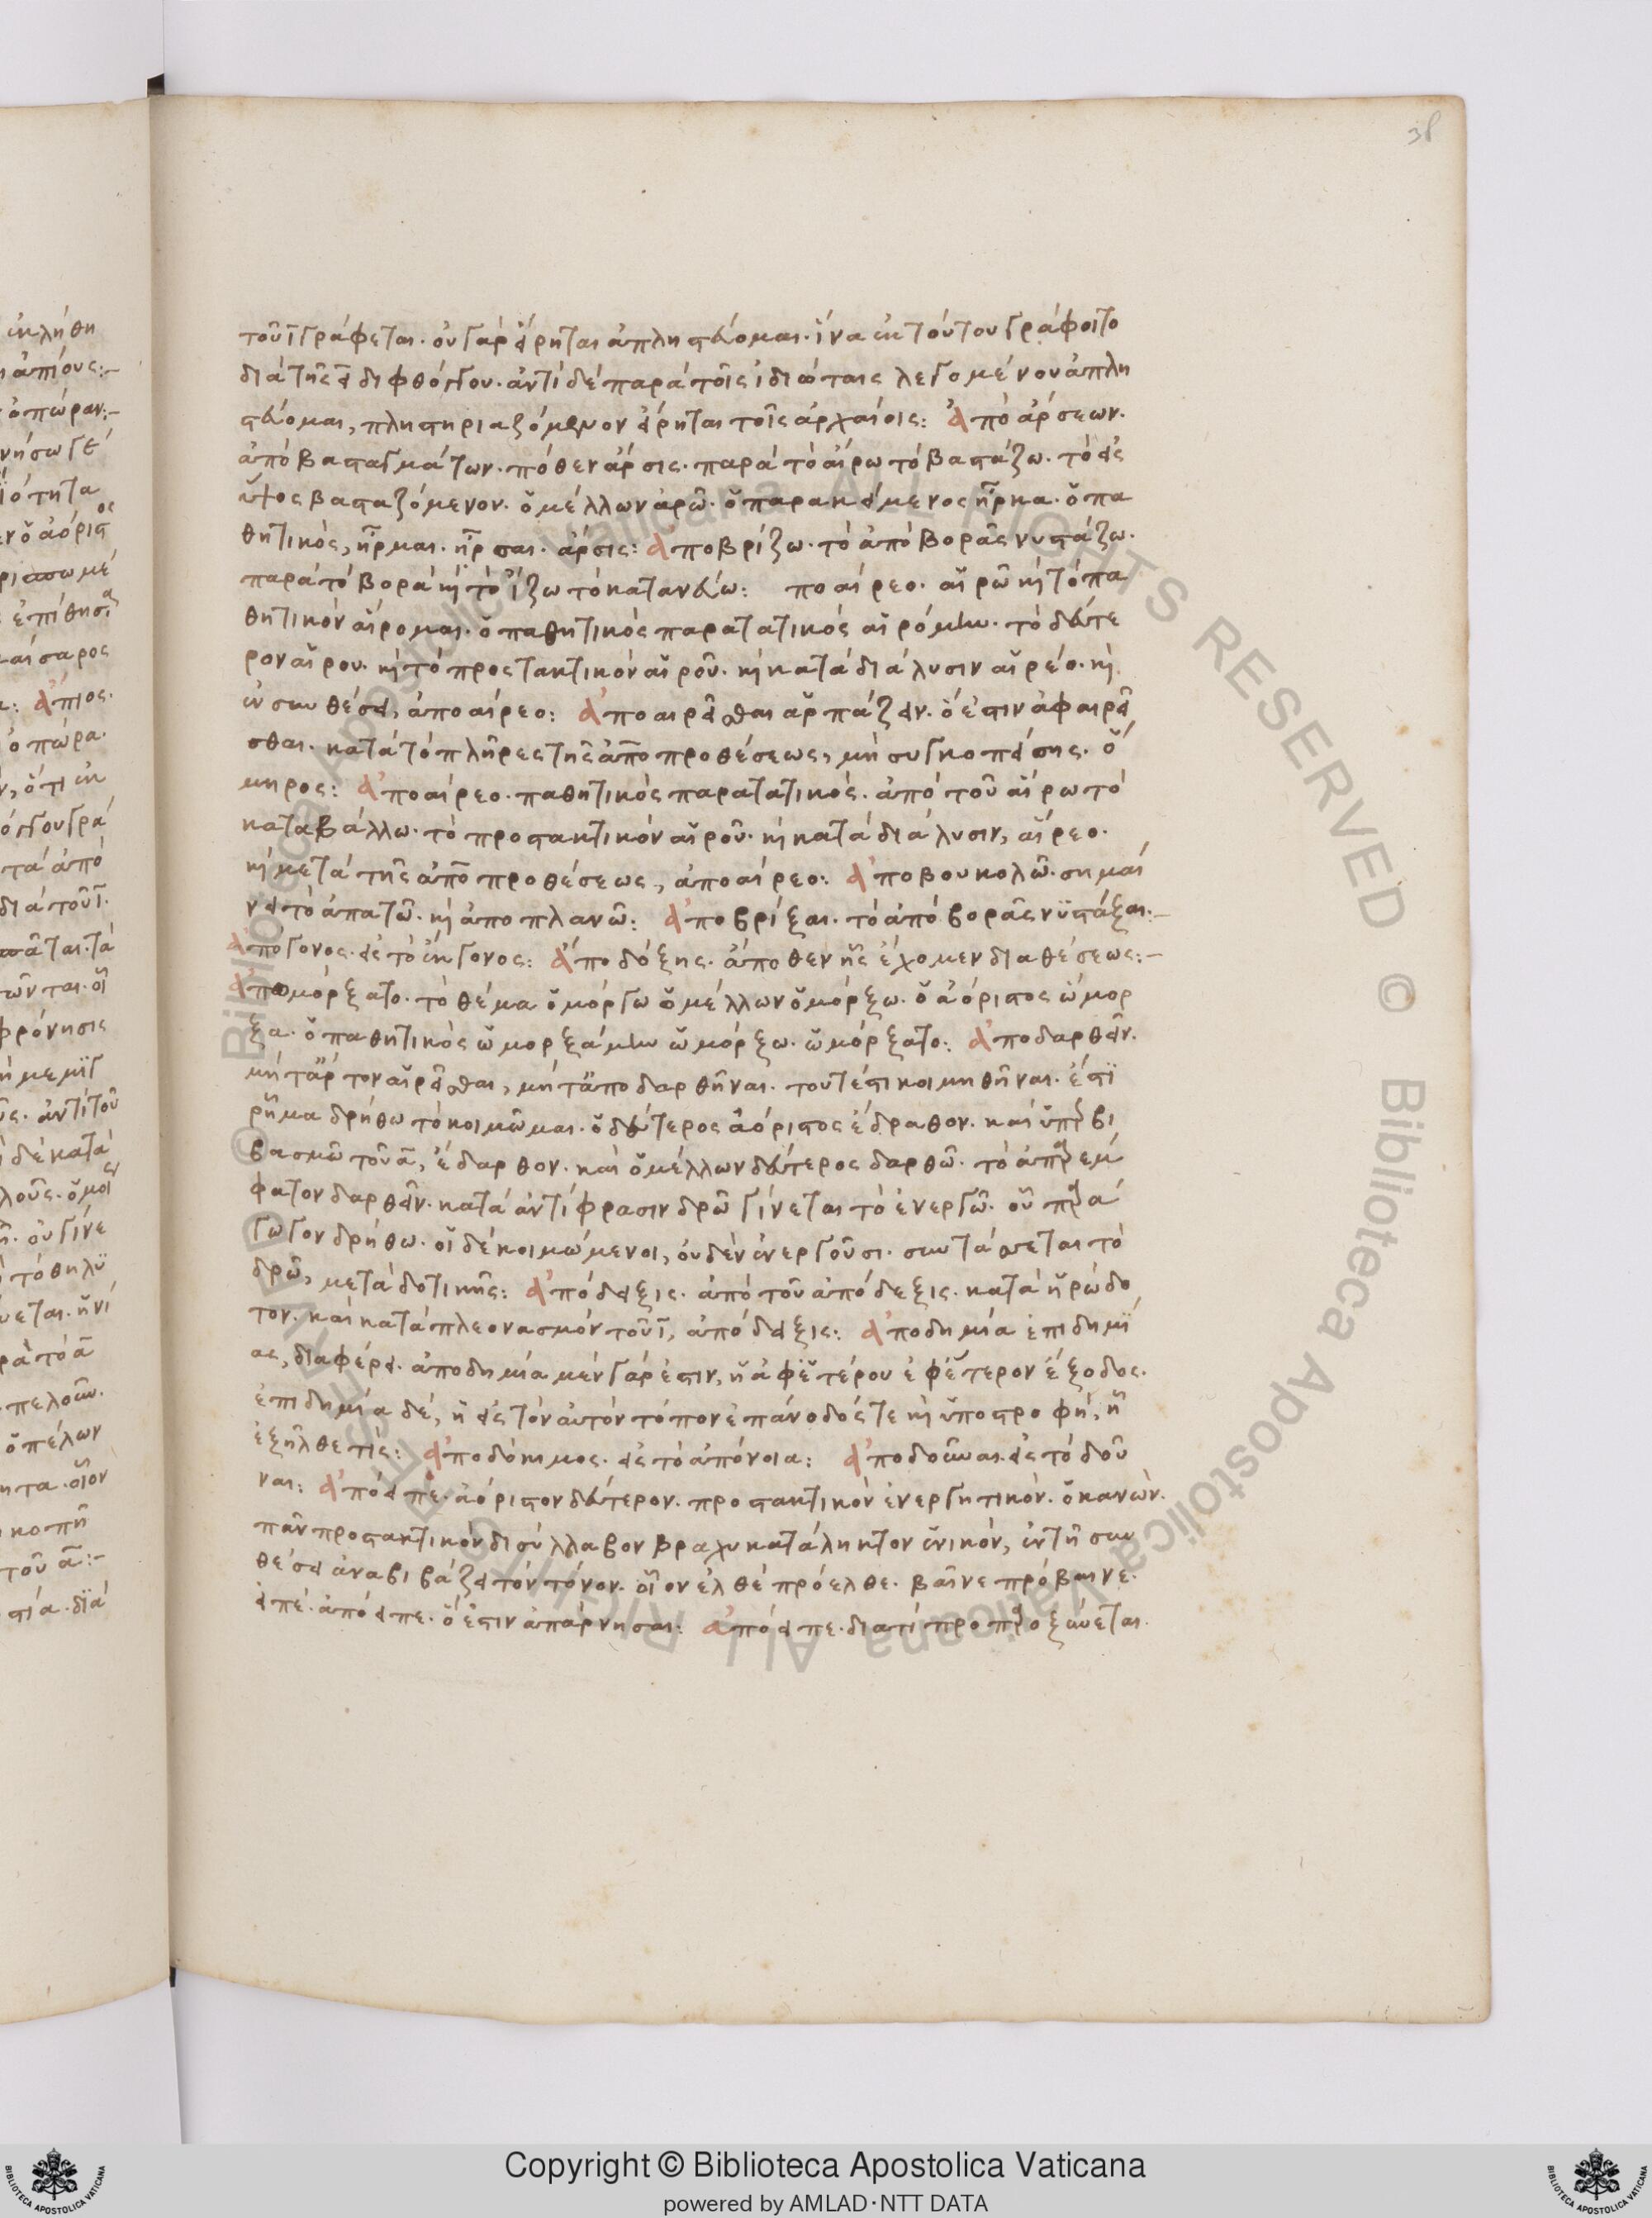 τοῦ ϊ γράφεται. οὐ γὰρ εἴρηται ἀπληστεύομαι. ἵνα ἐκ τούτου γράφοιτο
διὰ τῆς ει διφθόγγου. ἀντὶ δὲ παρὰ τοῖς ἰδιώταις λεγομένου ἀπλη
στεύομαι, πληστηριαζόμενον εἴρηται τοῖς ἀρχαίοις: Ἀπὸ ἄρσεων.
ἀπὸ βασταγμάτων. πόθεν ἄρσις. παρὰ τὸ αἴρω τὸ βαστάζω. τὸ εἰς
ὕψος βασταζόμενον. ὁ μέλλων ἀρῶ. ὁ παρακείμενος ἦρκα. ὁ πα
θητικός, ἦρμαι. ἦρσαι. ἄρσις: Ἀποβρίζω. τὸ ἀπὸ βορᾶς νυστάζω.
παρὰ τὸ βορὰ καὶ τὸ ἵζω τὸ κατανεύω: ποαίρεο. αἱρῶ καὶ τὸ πα
θητικὸν αἵρομαι. ὁ παθητικὸς παρατατικὸς αἱρόμην. τὸ δεύτε
ρον αἵρου. καὶ τὸ προστακτικὸν αἱροῦ. καὶ κατὰ διάλυσιν αἱρέο. καὶ
ἐν συνθέσει, ἀποαίρεο: Ἀποαιρεῖσθαι ἁρπάζειν. ὅ ἐστιν ἀφαιρεῖ
σθαι. κατὰ τὸ πλῆρες τῆς ἀπὸ προθέσεως, μὴ συγκοπείσης. Ὅ
μηρος: Ἀποαίρεο. παθητικὸς παρατατικός. ἀπὸ τοῦ αἵρω τὸ
καταβάλλω. τὸ προστακτικὸν αἱροῦ. καὶ κατὰ διάλυσιν, αἵρεο.
καὶ μετὰ τῆς ἀπὸ προθέσεως, ἀποαίρεο: Ἀποβουκολῶ. σημαί
νει τὸ ἀπατῶ. καὶ ἀποπλανῶ: Ἀποβρίξαι. τὸ ἀπὸ βορᾶς νϋστάξαι:–
Ἀπόγονος. εἰς τὸ ἔκγονος: Ἀποδόξης. ἄποθεν ἧς ἔχομεν διαθέσεως:–
Ἀπωμόρξατο. τὸ θέμα ὁμόργω ὁ μέλλων ὁμόρξω. ὁ ἀόριστος ὤμορ
ξα. ὁ παθητικὸς ὡμορξάμην ὡμόρξω. ὡμόρξατο: Ἀποδαρθεῖν.
μήτ' ἄρτον αἱρεῖσθαι, μήτ' ἀποδαρθῆναι. τουτέστι κοιμηθῆναι. ἔστϊ
ῥῆμα δρήθω τὸ κοιμῶμαι. ὁ δεύτερος ἀόριστος ἔδραθον. καὶ ὑπερβι
βασμῶ τοῦ α, ἔδαρθον. καὶ ὁ μέλλων δεύτερος δαρθῶ. τὸ ἀπαρέμ
φατον δαρθεῖν. κατὰ ἀντίφρασιν δρῶ γίνεται τὸ ἐνεργῶ. οὗ παρα
γωγον δρήθω. οἱ δὲ κοιμώμενοι, οὐδὲν ἐνεργοῦσι. συντάσσεται τὸ
δρῶ, μετὰ δοτικῆς: Ἀπόδειξις. ἀπὸ τοῦ ἀπόδεξις. κατὰ ἡρώδο
τον. καὶ κατὰ πλεονασμὸν τοῦ ϊ, ἀπόδειξις: Ἀποδημία ἐπιδημί
ας, διαφέρει. ἀποδημία μὲν γάρ ἐστιν, ἡ ἀφ' ἑτέρου ἐφ' ἕτερον ἔξοδος.
ἐπιδημία δέ, ἡ εἰς τὸν αὐτὸν τόπον ἐπάνοδός τε καὶ ὑποστροφή, ἧ
ἐξῆλθε τίς: Ἀποδόκιμος. εἰς τὸ ἀπόνοια: Ἀποδοῦναι. εἰς τὸ δοῦ
ναι: Ἀπόειπε. ἀόριστον δεύτερον. προστακτικὸν ἐνεργητικόν. ὁ κανών.
πᾶν προστακτικὸν δισύλλαβον βραχυκατάληκτον ἑνικόν, ἐν τῆ συν
θέσει ἀναβιβάζει τὸν τόνον. οἷον ἐλθέ πρόελθε. βαῖνε πρόβαινε.
εἰπέ. ἀπόειπε. ὅ ἐστιν ἀπάρνησαι: Ἀπόειπε. διατί προπαροξύνεται.